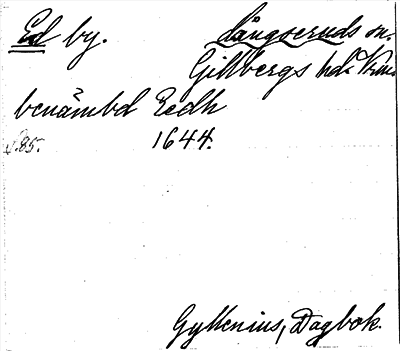 Ed by. Långseruds sn.
Gillbergs hd. Vrml.
benämbd Eedh
S. 85. 1644.
Gyllenius, Dagbok.